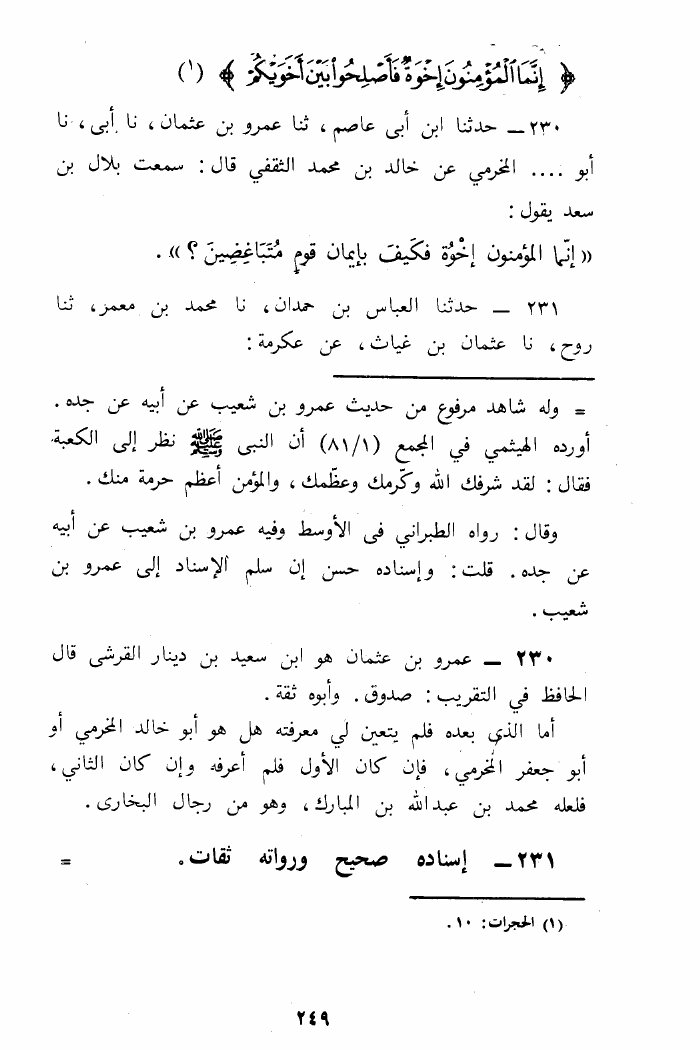 ﴿ إِنَّمَا ٱلْمُؤْمِنُونَ إِخْوَةٌ فَأَصْلِحُوا۟ بَيْنَ أَخَوَيْكُمْ ﴾ (١)
٢٣٠ ــ حدثنا ابن أبى عاصم، ثنا عمرو بن عثمان، نا أبى، نا
أبو .... المخرمي عن خالد بن محمد الثقفي قال: سمعت بلال بن
سعد يقول:
«إنّما المؤمنون إخْوُة فكَيفَ بإيمان قومٍ مُتَبَاغِضِينَ؟».
٢٣١ ــ حدثنا العباس بن حمدان، نا محمد بن معمر، ثنا
روح، نا عثمان بن غياث، عن عكرمة:
= وله شاهد مرفوع من حديث عمرو بن شعيب عن أبيه عن جده.
أورده الهيثمي في المجمع (٨١/١) أن النبى ﷺ نظر إلى الكعبة
فقال: لقد شرفك الله وكرّمك وعظّمك، والمؤمن أعظم حرمة منك.
وقال: رواه الطبراني فى الأوسط وفيه عمرو بن شعيب عن أبيه
عن جده. قلت: وإسناده حسن إن سلم الإسناد إلى عمرو بن
شعيب.
٢٣٠ ــ عمرو بن عثمان هو ابن سعيد بن دينار القرشى قال
الحافظ في التقريب: صدوق. وأبوه ثقة.
أما الذي بعده فلم يتعين لي معرفته هل هو أبو خالد المخرمي أو
أبو جعفر المخرمي، فإن كان الأول فلم أعرفه وإن كان الثاني،
فلعله محمد بن عبدالله بن المبارك، وهو من رجال البخارى.
٢٣١ ــ إسناده صحيح ورواته ثقات. =
(١) الحجرات: ١٠.
٢٤٩